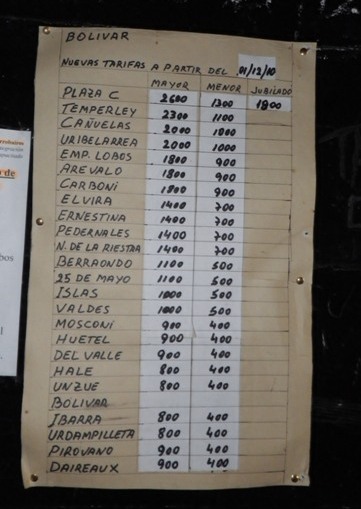 BOLIVAR
NUEVAS TARIFAS A PARTIR DEL 01/12/10
MAYOR MENOR JUBILADO
PLAZA C 2600 1300 1800
TEMPERLEY 2300 1100
CAÑUELAS 2000 1000
URIBELARREA 2000 1000
EMP. LOBOS 1800 900
AREVALO 1800 900
CARBONI 1800 900
ELVIRA 1400 700
ERNESTINA 1400 700
PEDERNALES 1400 700
N. DE LA RIESTRA 1400 700
BERRAONDO 1100 500
25 DE MAYO 1100 500
ISLAS 1000 500
VALDES 1000 500
MOSCONI 900 400
HUETEL 900 400
DEL VALLE 900 400
HALE 800 400
UNZUE 800 400
BOLIVAR
IBARRA 800 400
URDAMPILLETA 800 400
PIROVANO 900 400
DAIREAUX 900 400